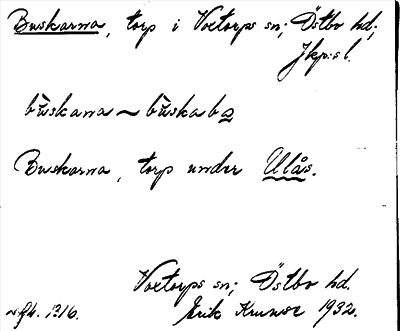 Buskarna, torp i Voxtorps sn; Östbo hd;
Jkp:s l.
bùskana ~ bùskaba
Buskarna, torp under Ulås.
Voxtorps sn; Östbo hd.
Erik 1932.